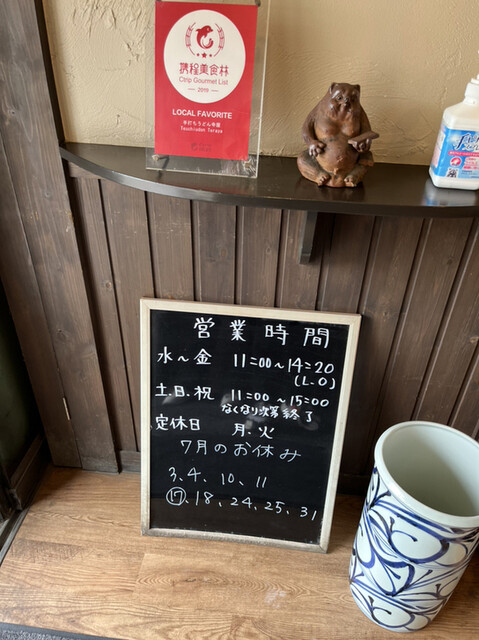 携程美食林
Ctrip Gourmet List
2019
LOCAL FAVORITE
手打ちうどん寺屋
Teuchiudon Teraya
営業時間
水~金 11=00~14=20
(L.O)
土.日.祝 11=00~15=00
なくなり次第終了
定休日 月.火
7月のお休み
3、4、10、11
⑰、18、24、25、31